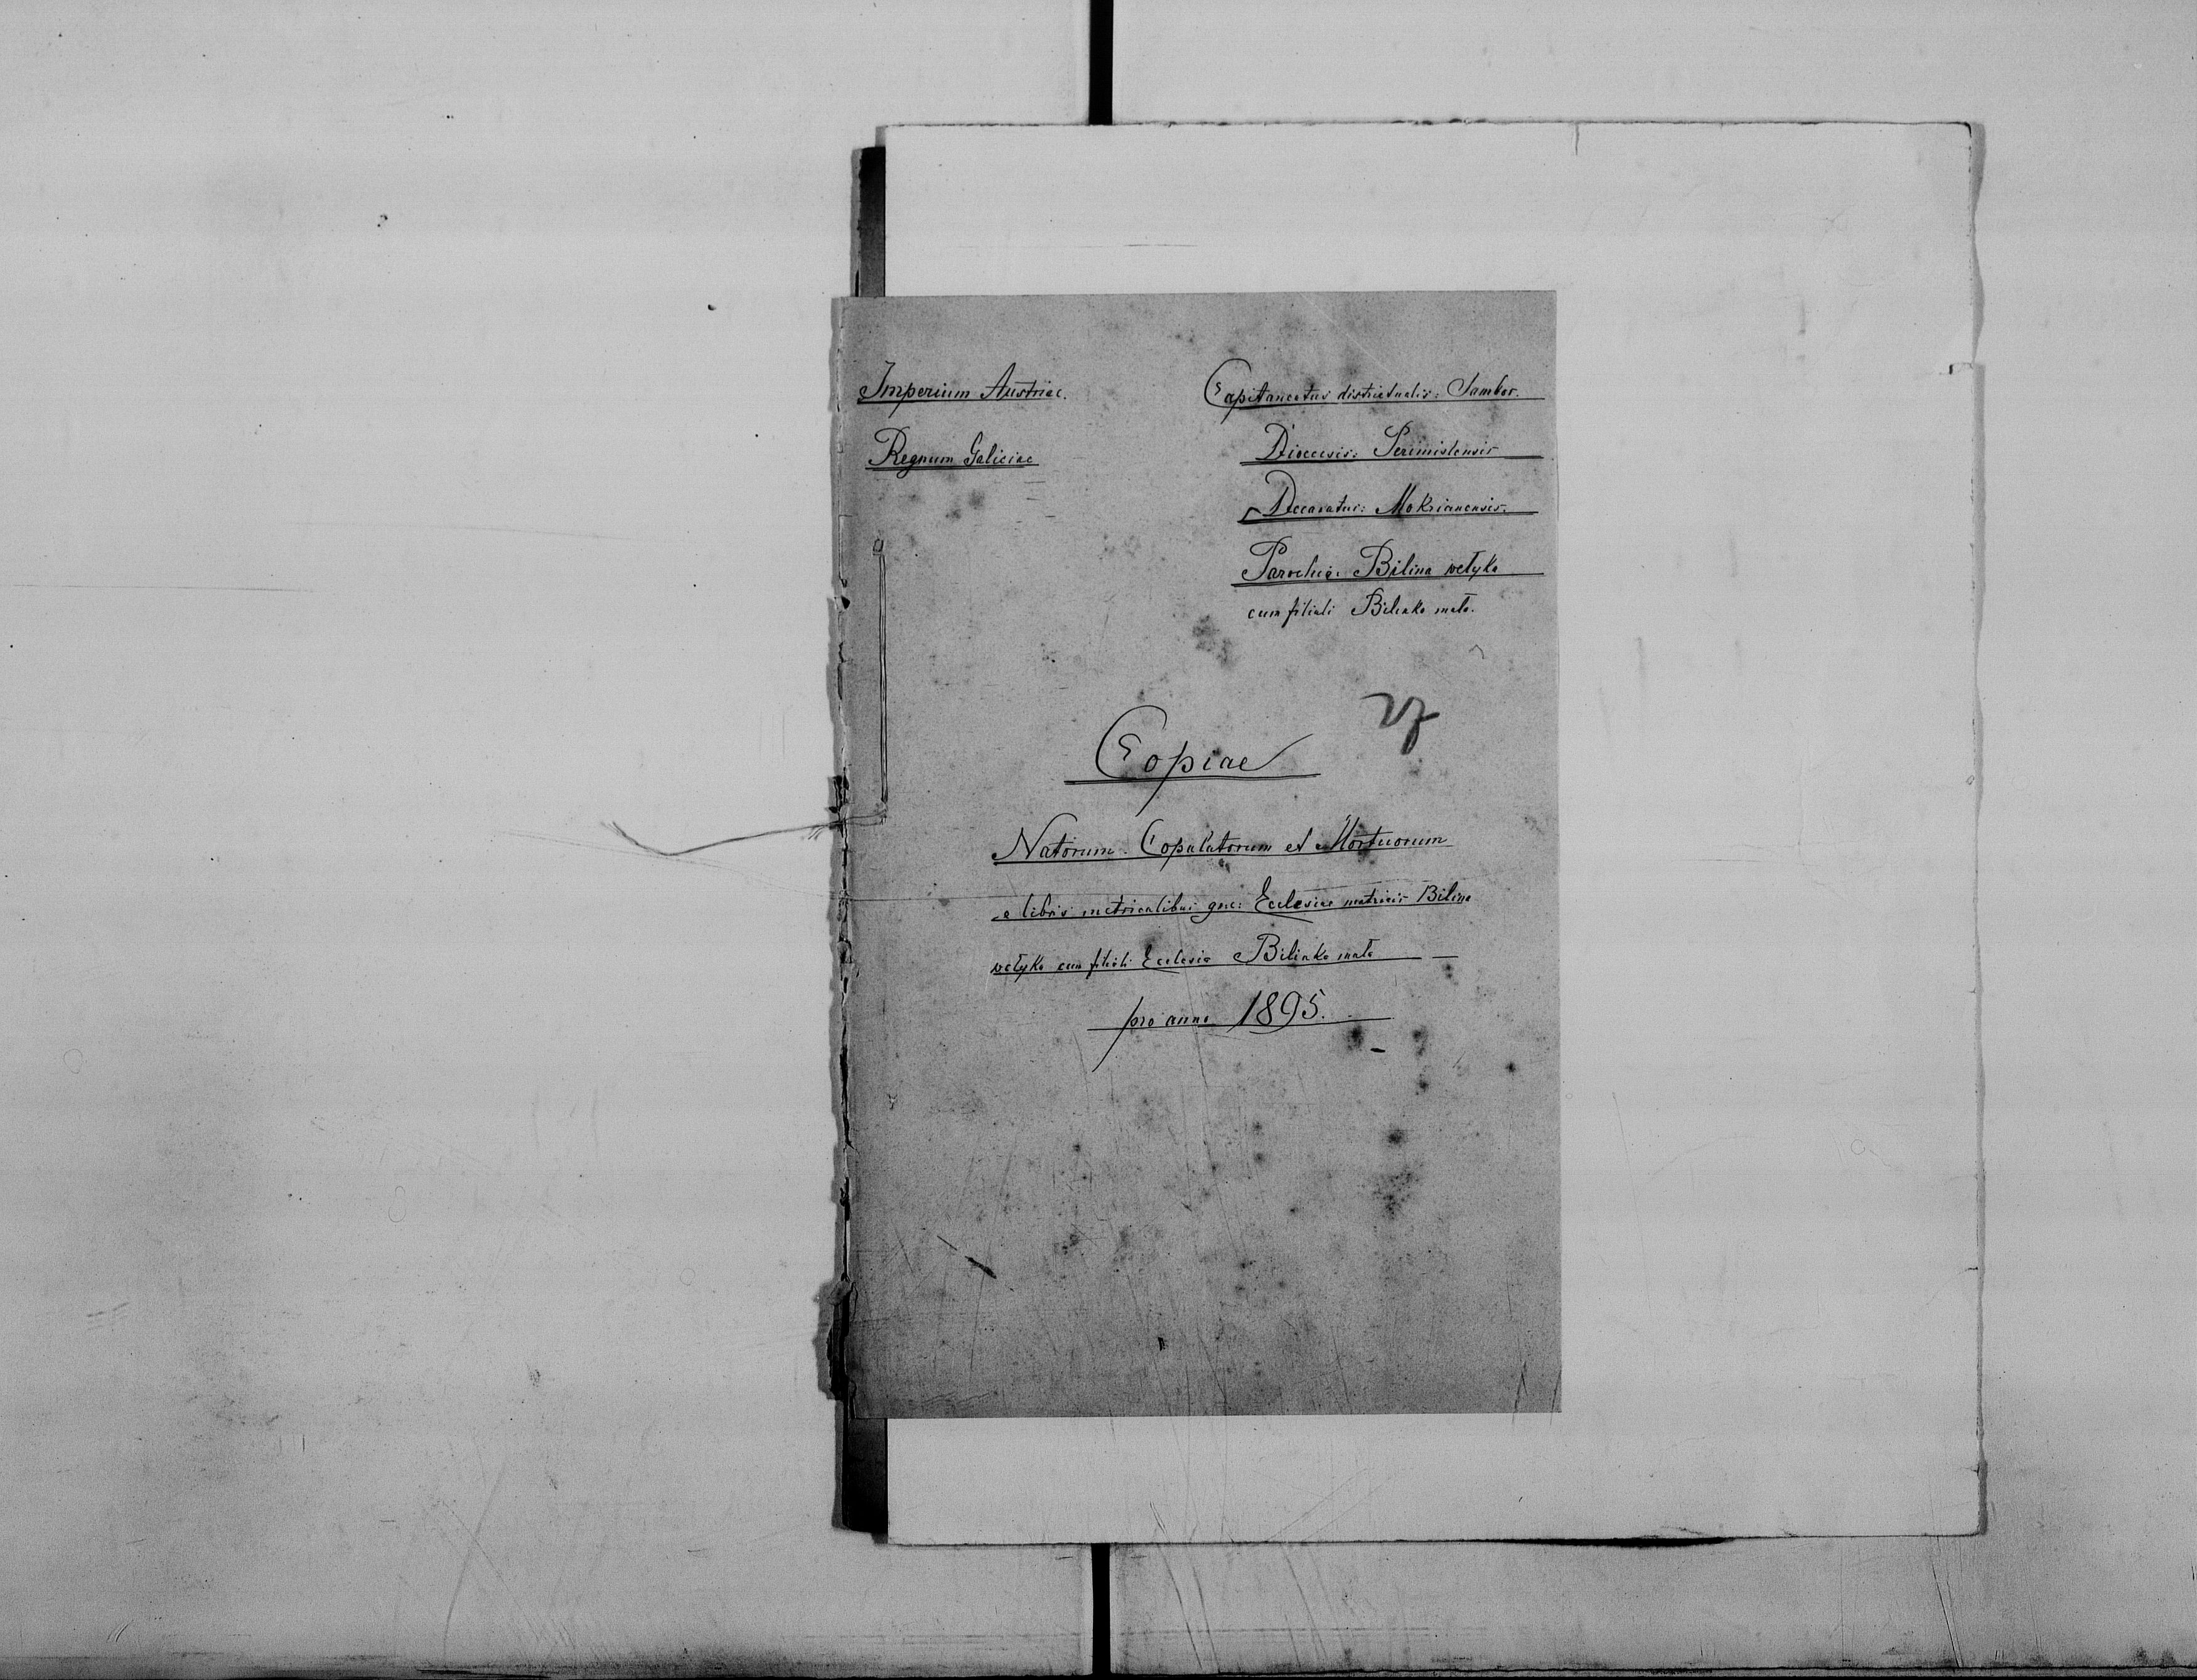 Imperium Austriae.
Regnum Galiciae
Capitaneatus districtualis: Sambor.
Dioecesis: Premislensis
Decanatus: Mokrianensis.
Parochia: Bilina wełyka
cum filiali Bilinka mała.
Copiae
Natorum. Copulatorum et Mortuorum
e libris metricalibus gr.c: Ecclesiae matricis Bilina
wełyka cum filiali Ecclesia Bilinka mała —
pro anno 1895.